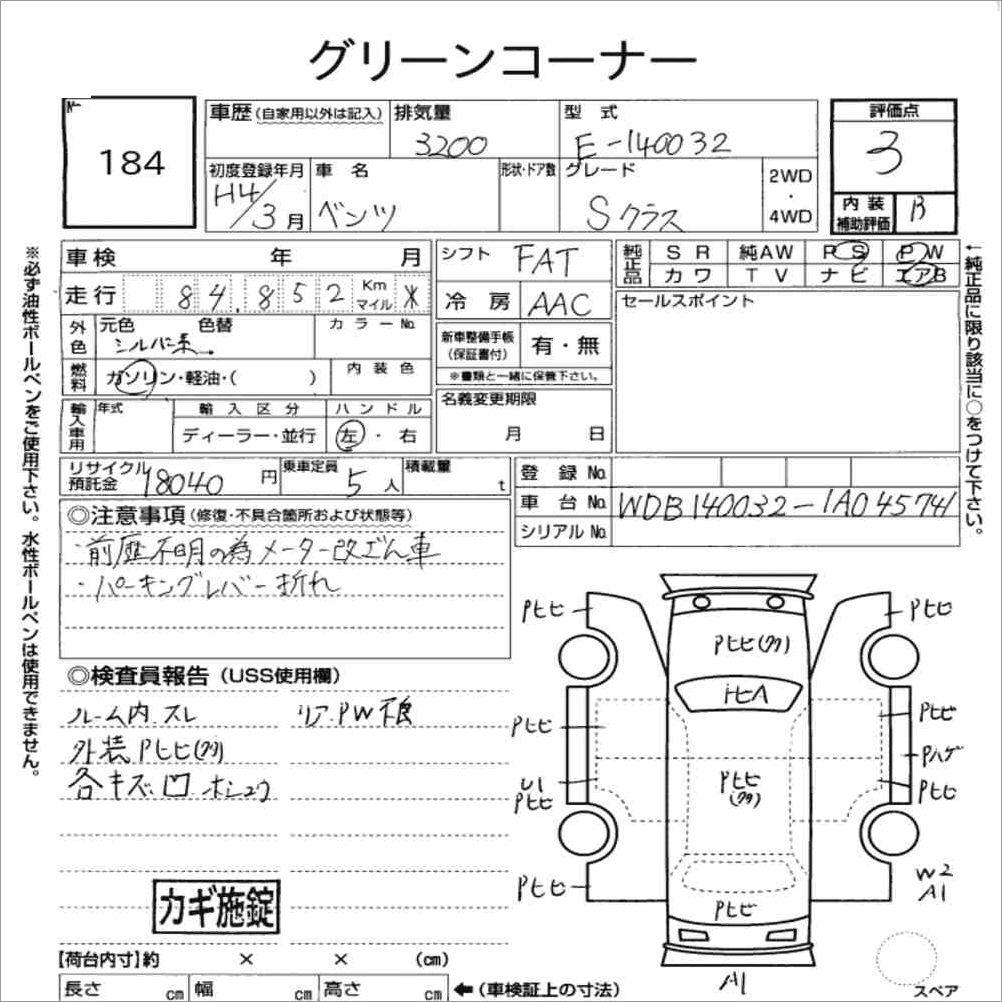 グリーンコーナー
No.
184
車歴(自家用以外は記入)
排気量
3200
型式
E-140032
評価点
3
初度登録年月
H4/3月
車名
ベンツ
形状・ドア数
グレード
Sクラス
2WD
・
4WD
内装
補助評価
B
車検 年 月
走行 84,852 Km マイル *
外色
元色 色替
シルバー系
カラーNo.
燃料
ガソリン・軽油・( )
内装色
輸入車用
年式
輸入区分
ディーラー・並行
ハンドル
左・右
シフト
FAT
冷房
AAC
新車整備手帳
(保証書付)
有・無
※書類と一緒に保管下さい。
名義変更期限
月 日
純正品
SR 純AW PS PW
カワ TV ナビ エアB
セールスポイント
←純正品に限り該当に○をつけて下さい。
※必ず油性ボールペンをご使用下さい。水性ボールペンは使用できません。
リサイクル
預託金
18040円
乗車定員
5人
積載量
t
登録No.
車台No.
WDB140032-1A045741
シリアルNo.
◎注意事項(修復・不具合箇所および状態等)
・前歴不明の為メーター改ざん車
・パーキングレバー折れ
◎検査員報告(USS使用欄)
ルーム内スレ
リアPW不良
外装Pヒビ(クリ)
各キズ凹ホシュウ
カギ施錠
Pヒビ
Pヒビ
Pヒビ(クリ)
Pヒビ
Pヒビ
Pハゲ
U1
Pヒビ
Pヒビ
Pヒビ
(クリ)
Pヒビ
Pヒビ
W2
A1
A1
スペア
【荷台内寸】約 × × (cm)
長さ cm 幅 cm 高さ cm ←(車検証上の寸法)